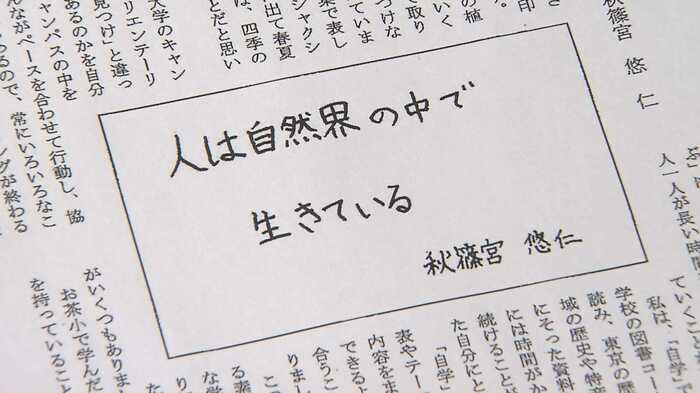 秋篠宮 悠仁
大学のキャン
リエンテーリ
見つけ」と違っ
あるのかを自分
ャンパスの中を
んながペースを合わせて行動し、協
あるので、常にいろいろなこ
人は自然界の中で
生きている
秋篠宮 悠仁
人一人が長い時間
ていくこと
私は、「自学」で
学校の図書コー
読み、東京の歴
域の歴史や特産
にそった資料
には時間がか
続けることが
た自分にと
「自学」
表やテー
内容をま
できるよ
合うこ
りまし
がいくつもありまし
お茶小で学んだ
を持っていること